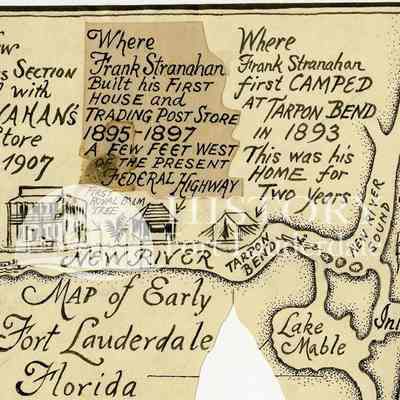 ew
s SECTION
with
AHAN'S
Store
1907
Where
Frank Stranahan
Built his FIRST
HOUSE and
TRADING POST STORE
1895-1897
A FEW FEET WEST
OF THE PRESENT
FEDERAL HIGHWAY
Where
Frank Stranahan
first CAMPED
AT TARPON BEND
in 1893
This was his
HOME for
Two Years
FIRST
ROYAL PALM
TREE
HISTORY
NEW RIVER
TARPON
BEND
NEW RIVER
SOUND
MAP of Early
Fort Lauderdale
Florida
Lake
Mable
In